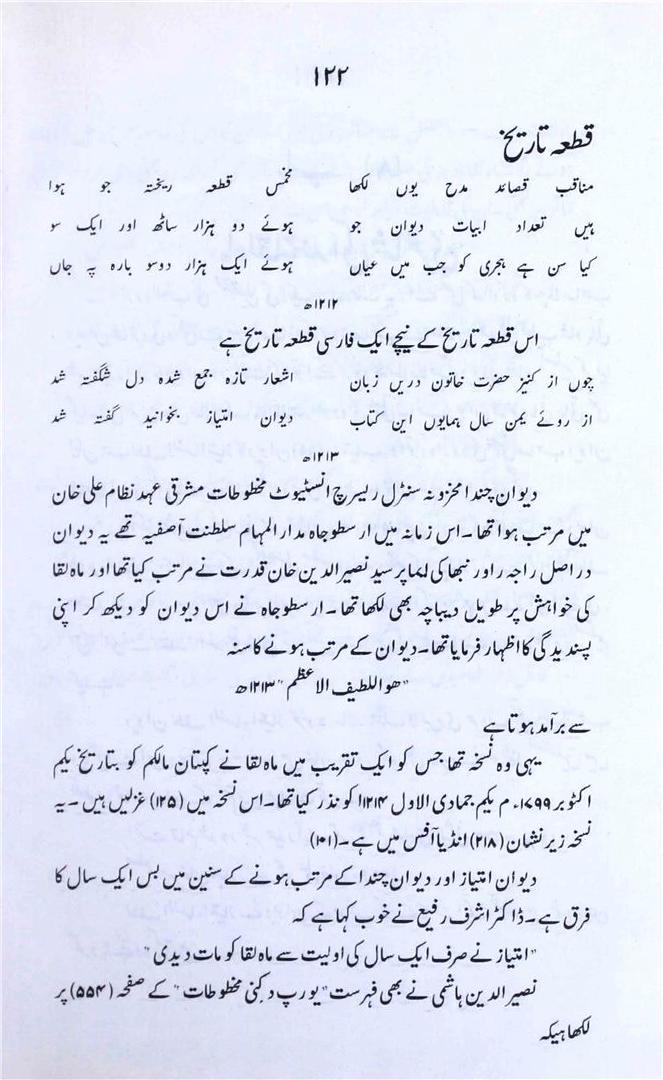 ۱۲۲
قطعہ تاریخ
مناقب قصائد مدح یوں لکھا مخمس قطعہ ریختہ جو ہوا
ہیں تعداد ابیات دیوان جو ہوئے دو ہزار ساٹھ اور ایک سو
کیا سن ہے ہجری کو جب میں عیاں ہوئے ایک ہزار دوسو بارہ پہ جاں
۱۲۱۲ھ
اس قطعہ تاریخ کے نیچے ایک فارسی قطعہ تاریخ ہے
چوں از کنیز حضرت خاتون دریں زبان اشعار تازہ جمع شدہ دل شگفتہ شد
از روئے یمن سال ہمایوں این کتاب دیوان امتیاز بخوانید گفتہ شد
۱۲۱۳ھ
دیوان چندا مخزونہ سنٹرل ریسرچ انسٹیوٹ مخطوطات مشرقی عہد نظام علی خان
میں مرتب ہوا تھا۔ اس زمانہ میں ارسطوجاہ مدار المہام سلطنت آصفیہ تھے یہ دیوان
دراصل راجہ راور نبھا کی ایما پر سید نصیر الدین خان قدرت نے مرتب کیا تھا اور ماہ لقا
کی خواہش پر طویل دیباچہ بھی لکھا تھا۔ ارسطوجاہ نے اس دیوان کو دیکھ کر اپنی
پسندیدگی کا اظہار فرمایا تھا۔ دیوان کے مرتب ہونے کا سنہ
"ھو اللطیف الاعظم" ۱۲۱۳ھ
سے برآمد ہوتا ہے
یہی وہ نسخہ تھا جس کو ایک تقریب میں ماہ لقا نے کپتان مالکم کو بتاریخ یکم
اکتوبر ۱۷۹۹ء م یکم جمادی الاول ۱۲۱۴ھ کو نذر کیا تھا۔ اس نسخہ میں (۱۲۵) غزلیں ہیں ۔ یہ
نسخہ زیر نشان (۲۱۸) انڈیا آفس میں ہے ۔ (۱۰۱)
دیوان امتیاز اور دیوان چندا کے مرتب ہونے کے سنین میں بس ایک سال کا
فرق ہے ۔ ڈاکٹر اشرف رفیع نے خوب کہا ہے کہ
"امتیاز نے صرف ایک سال کی اولیت سے ماہ لقا کو مات دیدی"
نصیر الدین ہاشمی نے بھی فہرست "یورپ دکنی مخطوطات" کے صفحہ (۵۵۴) پر
لکھا ہیکہ